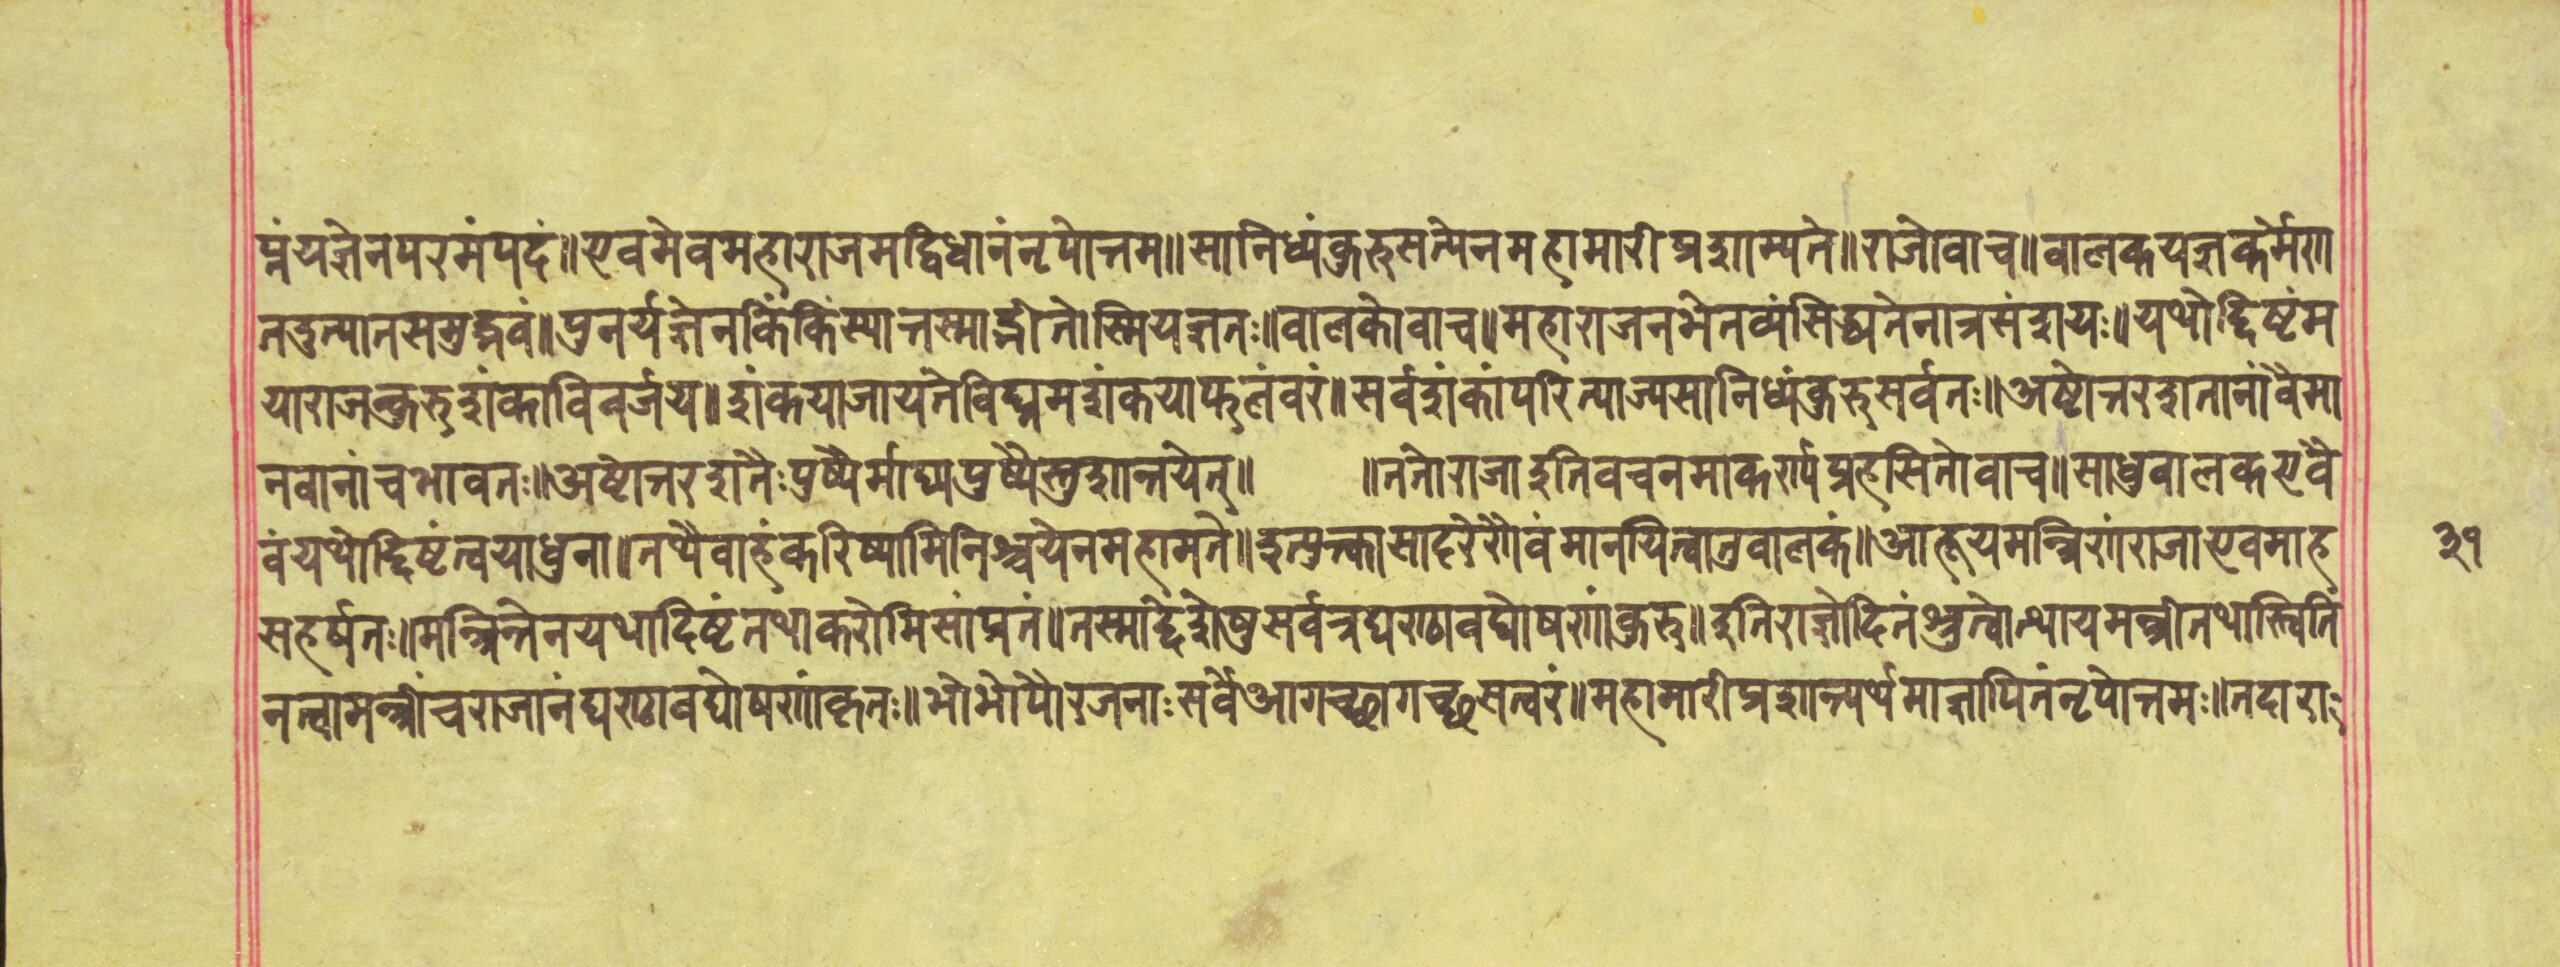 प्तं यज्ञेन परमं पदं॥ एवमेव महाराज मद्विधानं नृपोत्तम॥ सानिध्यं कुरु सत्येन महामारी प्रशाम्यते॥ राजोवाच॥ बालक यज्ञकर्मणा
तदुत्पात समुद्भवं॥ पुनर्यज्ञेन किं किं स्यात्तस्माद्भीतोस्मि यज्ञतः॥ बालकोवाच॥ महाराज न भेतव्यं सिद्ध्यते नात्र संशयः॥ यथोद्दिष्टं म
या राजन्कुरु शंका विवर्जय॥ शंकया जायते विघ्नमशंकया फलं वरं॥ सर्वशंकां परित्याज्य सानिध्यं कुरु सर्वतः॥ अष्टोत्तरशतानां वै मा
नवानां च भावतः॥ अष्टोत्तरशतैः पुष्पैर्माघ्यपुष्पैस्तु शान्तयेत्॥ ॥ ततो राजा इति वचनमाकर्ण्य प्रहसितोवाच॥ साधु बालक एवै
वं यथोद्दिष्टं त्वयाधुना॥ तथैवाहं करिष्यामि निश्चयेन महामते॥ इत्युक्त्वा सादरेरैवं मानयित्वा तु बालकं॥ आहूय मन्त्रिणं राजा एवमाह
सहर्षतः॥ मन्त्रिन्तेन यथादिष्टं तथा करोमि सांप्रतं॥ तस्माद्देशेषु सर्वत्र घण्ठावघोषणां कुरु॥ इति राज्ञोदितं श्रुत्वोत्थाय मन्त्री तथास्त्विति
नत्वा मन्त्री च राजानं घण्ठावघोषणां कृतः॥ भो भो पौरजनाः सर्वे आगच्छागच्छ सत्वरं॥ महामारीप्रशान्त्यर्थमाज्ञापितं नृपोत्तमः॥ तदा रा
३१